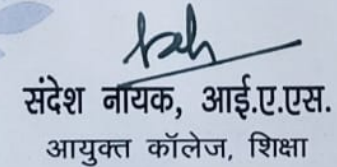 संदेश नायक, आई.ए.एस.
आयुक्त कॉलेज, शिक्षा